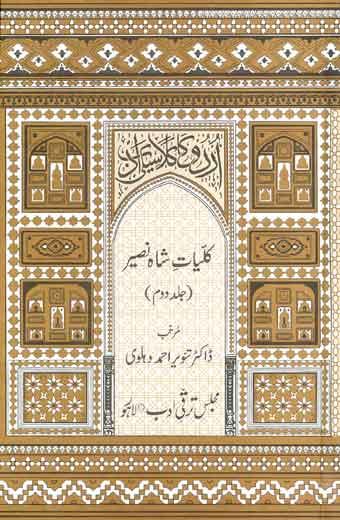 اردو کا کلاسیکی ادب
کلیاتِ شاہ نصیر
(جلد دوم)
مرتب
ڈاکٹر تنویر احمد دہلوی
مجلس ترقی ادب لاہور